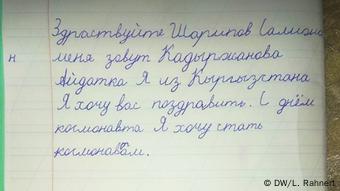 Здраствуйте Шарипов Салижан
н меня зовут Кадыржанова
Айдатка Я из Кыргызстана
Я хочу вас поздравить. С днём
космонавта Я хочу стать
космонавом.
© DW/L. Rahnert